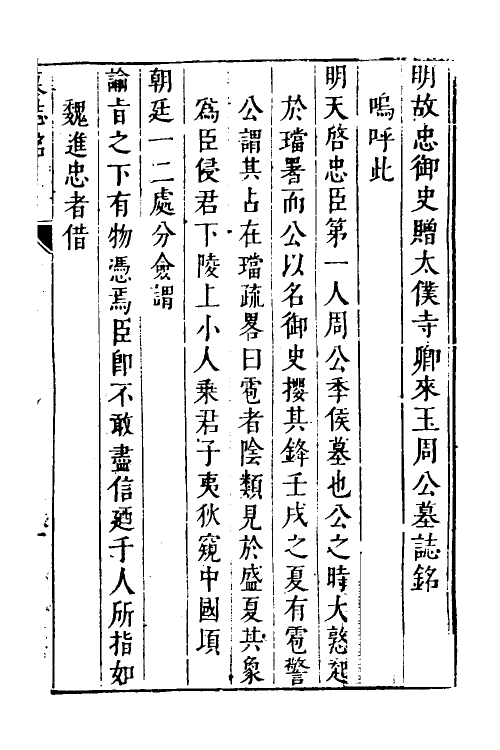 明故忠御史贈太僕寺卿來玉周公墓誌銘
嗚呼此
明天啓忠臣第一人周公季侯墓也公之時大憝起
於璫署而公以名御史攖其鋒壬戌之夏有雹警
公謂其占在璫疏畧曰雹者陰類見於盛夏其象
爲臣侵君下陵上小人乘君子夷狄窺中國項
朝廷一二處分僉謂
諭旨之下有物憑焉臣卽不敢盡信廼于人所指如
魏進忠者借